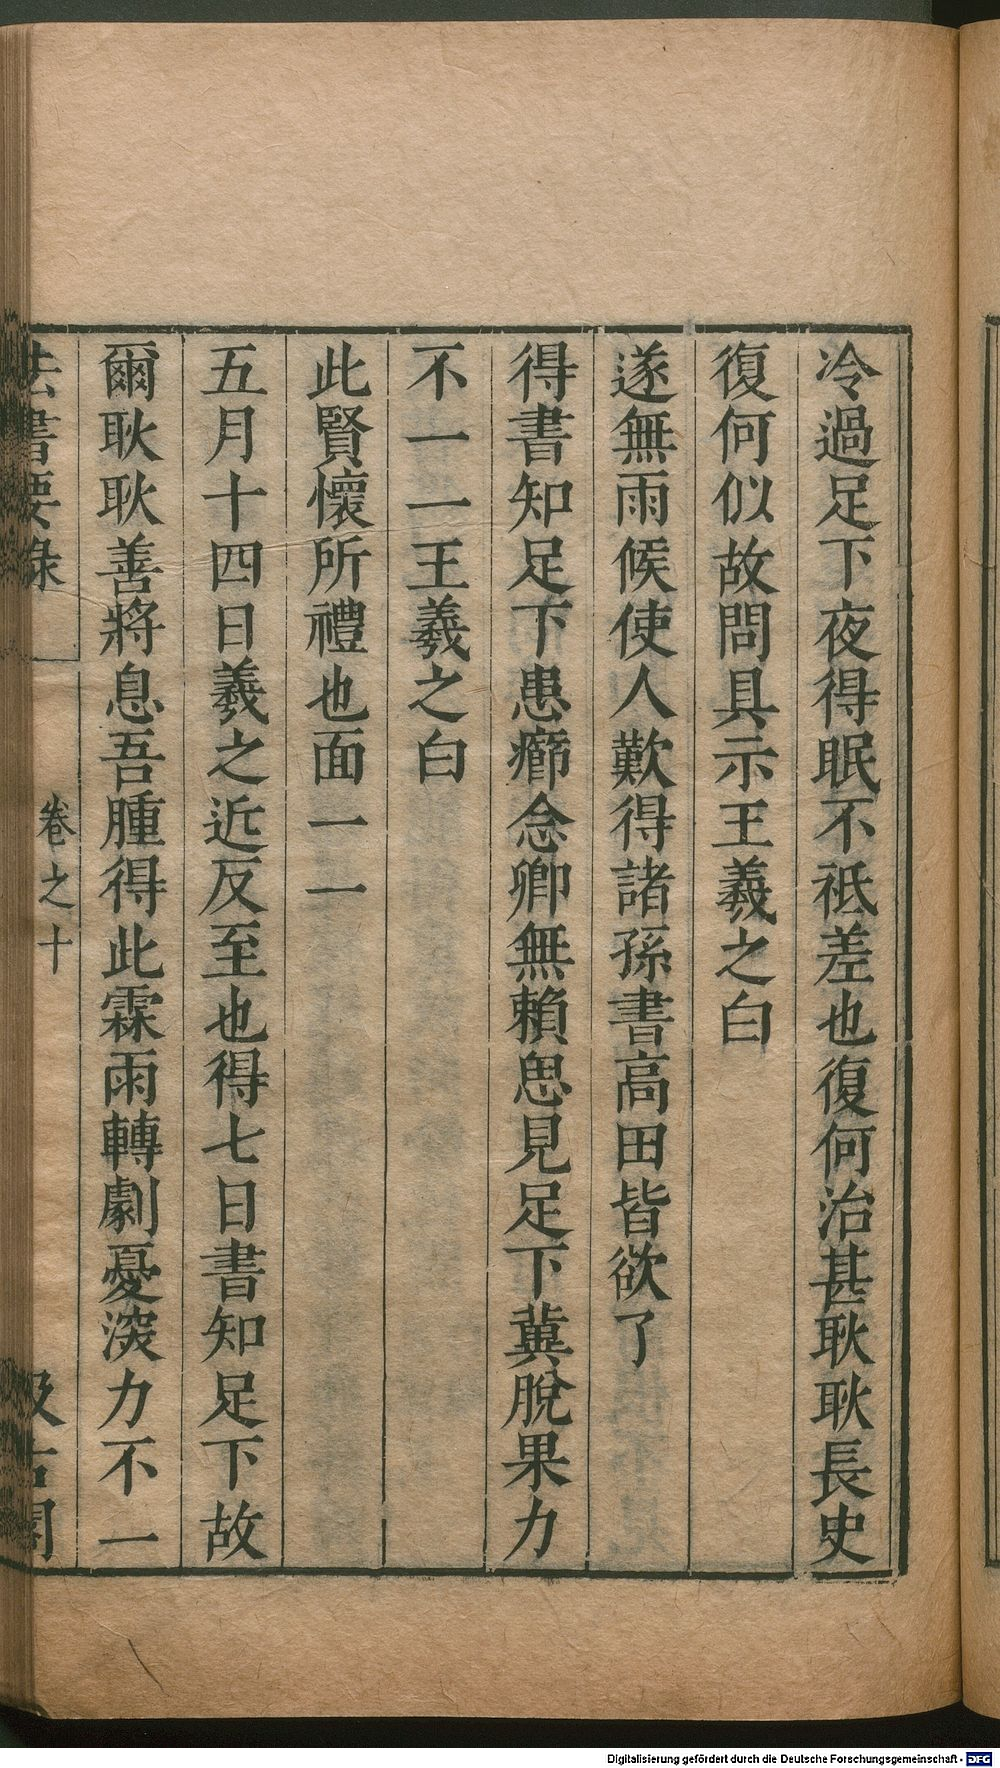 冷過足下夜得眠不祗差也復何治甚耿耿長史
復何似故問具示王羲之白
遂無雨候使人歎得諸孫書高田皆欲了
得書知足下患癤念卿無賴思見足下冀脫果力
不一一王羲之白
此賢懷所禮也面一一
五月十四日羲之近反至也得七日書知足下故
爾耿耿善將息吾腫得此霖雨轉劇憂深力不一
法書要錄
卷之十
汲古閣
Digitalisierung gefördert durch die Deutsche Forschungsgemeinschaft - DFG